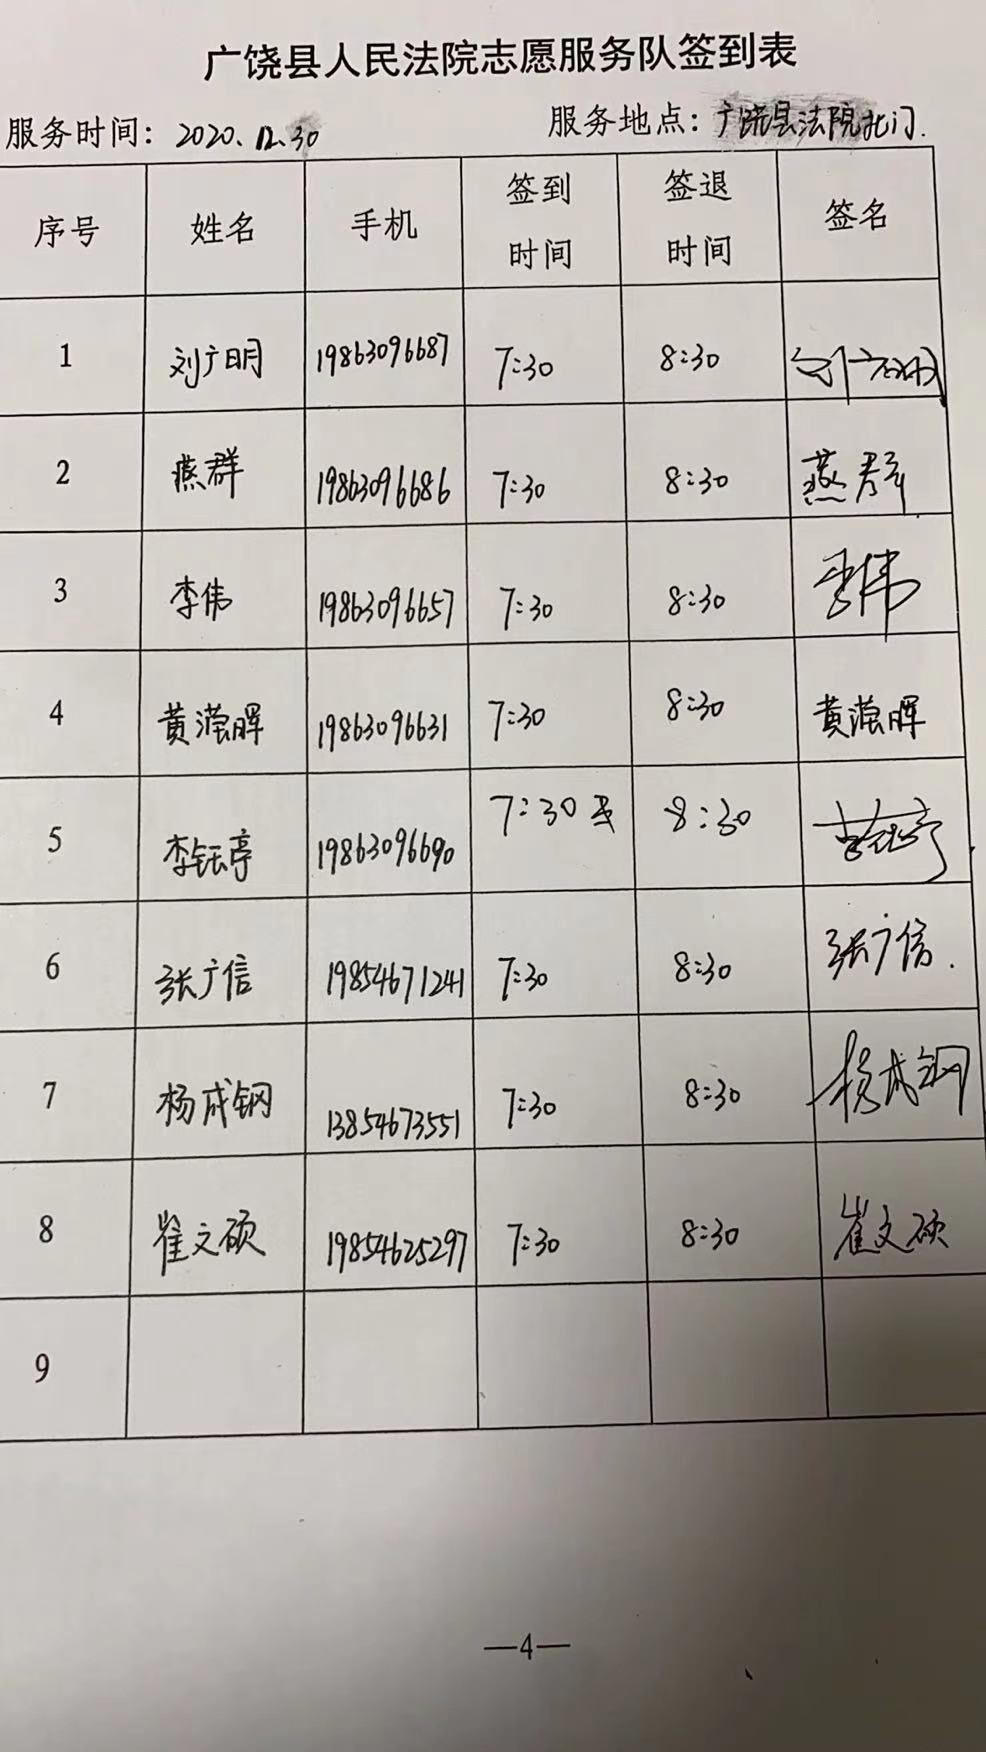 广饶县人民法院志愿服务队签到表
服务时间：2020.12.30 服务地点：广饶县法院北门.
序号 姓名 手机 签到时间 签退时间 签名
1 刘广明 19863096687 7:30 8:30 刘广明
2 燕群 19863096686 7:30 8:30 燕群
3 李伟 19863096657 7:30 8:30 李伟
4 黄滢晖 19863096631 7:30 8:30 黄滢晖
5 李钰亭 19863096690 7:30 8:30 李钰亭
6 张广信 19854671241 7:30 8:30 张广信.
7 杨成钢 13854673551 7:30 8:30 杨成钢
8 崔文硕 19854625297 7:30 8:30 崔文硕
9
—4—